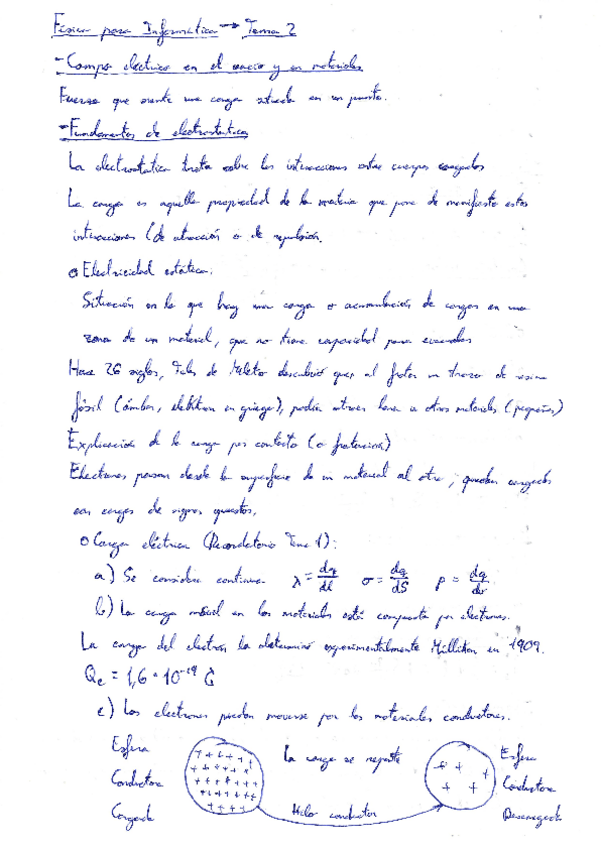 Física para Informática → Tema 2
- Campo eléctrico en el vacío y en materiales
Fuerza que siente una carga situada en un punto.
- Fundamentos de electrostática
La electrostática trata sobre las interacciones entre cuerpos cargados
La carga es aquella propiedad de la materia que pone de manifiesto estas
interacciones (de atracción o de repulsión.
o Electricidad estática:
Situación en la que hay una carga o acumulación de cargas en una
zona de un material, que no tiene capacidad para evacuarlas
Hace 26 siglos, Tales de Mileto descubrió que, al frotar un trozo de resina
fósil (ámbar, elektron en griego), podía atraer hacia a otros materiales (pequeños)
Explicación de la carga por contacto (o frotación)
Electrones pasan desde la superficie de un material al otro, quedan cargados
con cargas de signos opuestos.
o Carga eléctrica (Recordatorio Tema 1):
a) Se considera continua λ = dq/dl σ = dq/dS ρ = dq/dv
b) La carga móvil en los materiales está compuesta por electrones.
La carga del electrón la determinó experimentalmente Millikan en 1909.
Qe = 1,6 · 10⁻¹⁹ C
c) Los electrones pueden moverse por los materiales conductores.
Esfera Conductora Cargada
La carga se reparte
Hilo conductor
Esfera Conductora Descargada